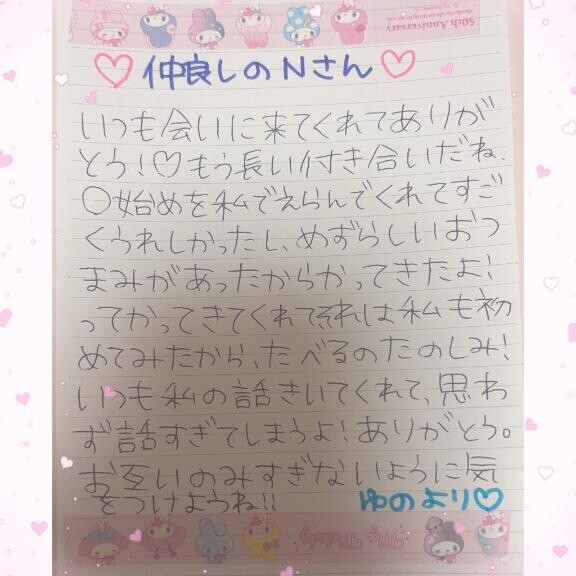 50th Anniversary
♡仲良しのNさん♡
いつも会いに来てくれてありが
とう!♡もう長い付き合いだね.
〇始めを私でえらんでくれてすご
くうれしかったし、めずらしいおつ
まみがあったからかってきたよ!
ってかってきてくれて、それは私も初
めてみたから、たべるのたのしみ!
いつも私の話きいてくれて、思わ
ず話すぎてしまうよ!ありがとう。
お互いのみすぎないように気
をつけようね!!
ゆのより♡
My Melody